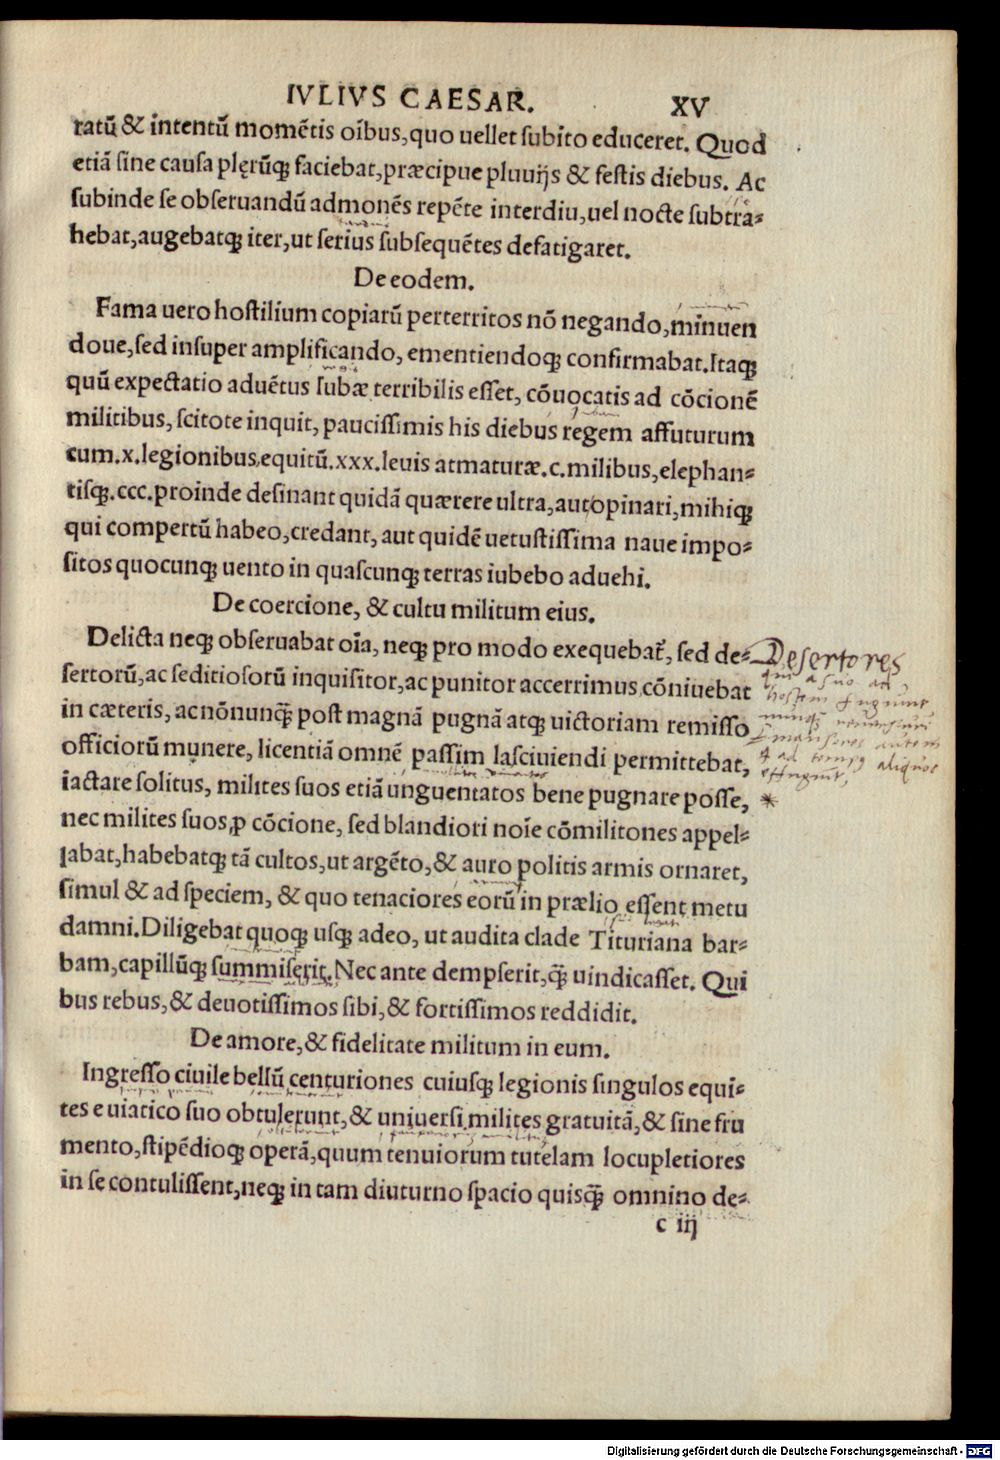 IVLIVS CAESAR. XV
ratū & intentū momētis oībus, quo uellet subito educeret. Quod
etiā sine causa plęrūq; faciebat, præcipue pluuijs & festis diebus. Ac
subinde se obseruandū admonēs repēte interdiu, uel nocte subtra-
hebat, augebatq; iter, ut serius subsequētes defatigaret.
De eodem.
Fama uero hostilium copiarū perterritos nō negando, minuen
doue, sed insuper amplificando, ementiendoq; confirmabat. Itaq;
quū expectatio aduētus Iubæ terribilis esset, cōuocatis ad cōcionē
militibus, scitote inquit, paucissimis his diebus regem affuturum
cum .x. legionibus, equitū .xxx. leuis atmaturæ .c. milibus, elephan-
tisq; .ccc. proinde desinant quidā quærere ultra, aut opinari, mihiq;
qui compertū habeo, credant, aut quidē uetustissima naue impo-
sitos quocunq; uento in quascunq; terras iubebo aduehi.
De coercione, & cultu militum eius.
Delicta neq; obseruabat oīa, neq; pro modo exequebat̄, sed de-
sertorū, ac seditiosorū inquisitor, ac punitor accerrimus, cōniuebat
in cæteris, ac nōnunq̄ post magnā pugnā atq; uictoriam remisso
officiorū munere, licentiā omnē passim lasciuiendi permittebat,
iactare solitus, milites suos etiā unguentatos bene pugnare posse,
nec milites suos ꝓ cōcione, sed blandiori noīe cōmilitones appel-
labat, habebatq; tā cultos, ut argēto, & auro politis armis ornaret,
simul & ad speciem, & quo tenaciores eorū in prælio essent metu
damni. Diligebat quoq; usq; adeo, ut audita clade Tituriana bar-
bam, capillūq; summiserit. Nec ante dempserit, q̄ uindicasset. Qui
bus rebus, & deuotissimos sibi, & fortissimos reddidit.
De amore, & fidelitate militum in eum.
Ingresso ciuile bellū centuriones cuiusq; legionis singulos equi-
tes e uiatico suo obtulerunt, & uniuersi milites gratuitā, & sine fru
mento, stipēdioq; operā, quum tenuiorum tutelam locupletiores
in se contulissent, neq; in tam diuturno spacio quisq̄ omnino de-
c iij
Desertores
qui a suo ad
hostem
aliquos
Digitalisierung gefördert durch die Deutsche Forschungsgemeinschaft - DFG